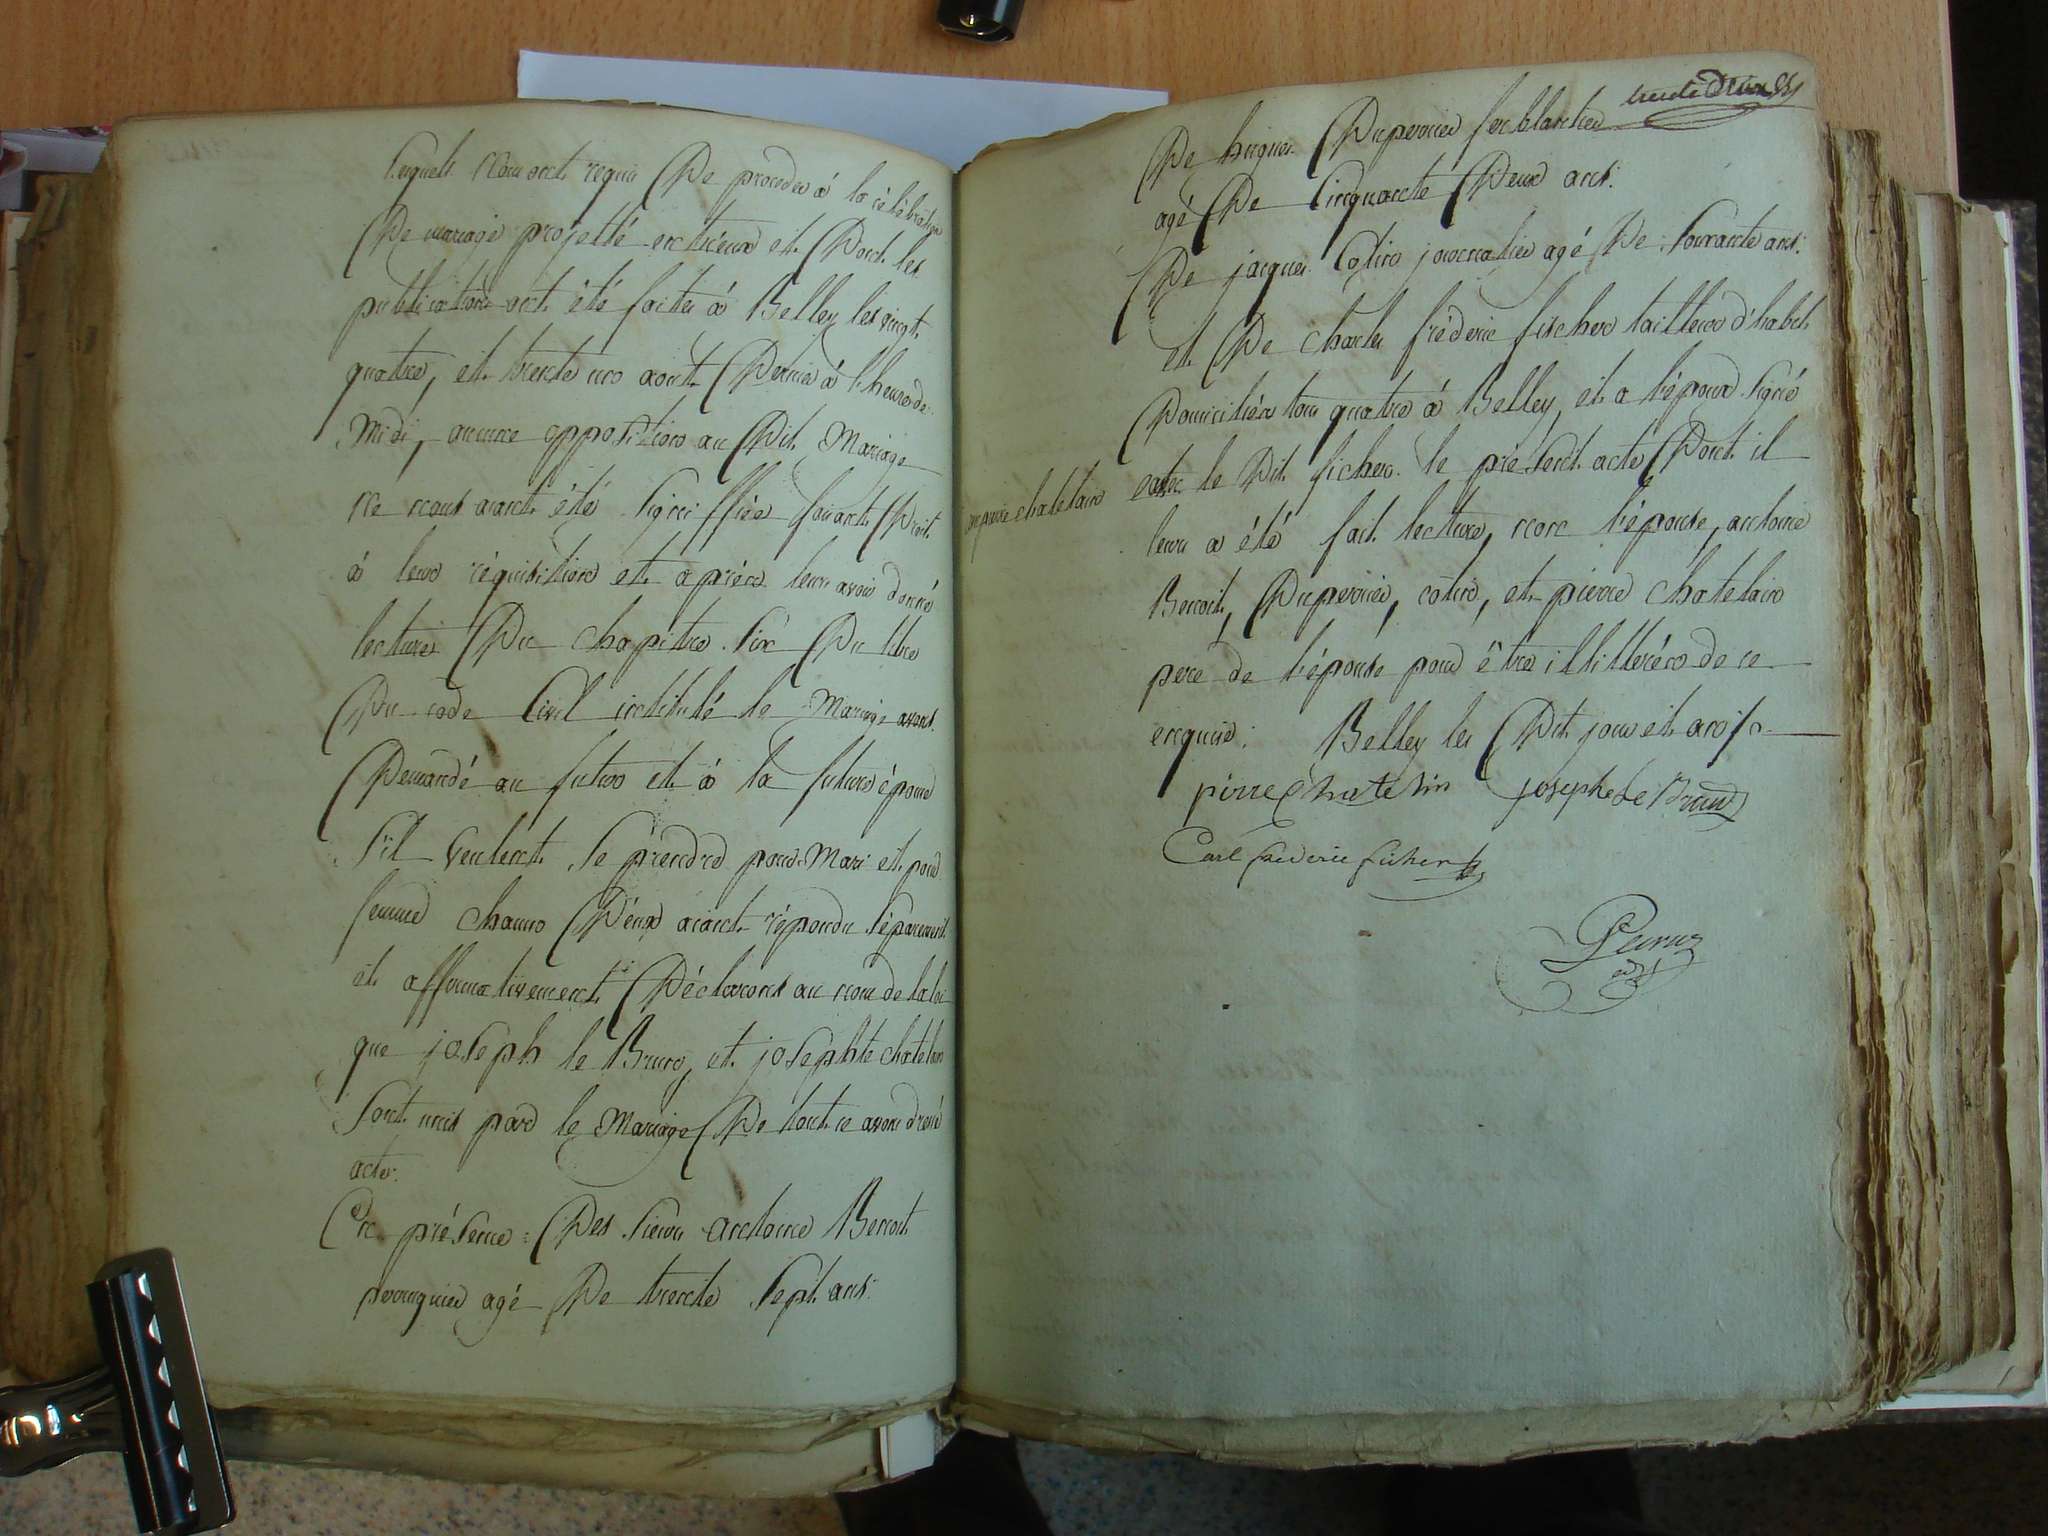 Lequels Nous ont requis De proceder à la célébration
De mariage projetté entr'eux et Dont les
publications ont été faites à Belley les vingt
quatre, et trente un aout Dernier à l'heure de
Midi, aucune opposition au Dit Mariage
Ne nous aiant été signiffiée faisant Droit
à leur réquisition et après leur avoir donné
lecture Du chapitre Six Du titre
Du code Civil intitulé le Mariage avons
Demandé au futur et à la future épouse
S'il veulent se prendre pour Mari et pour
femme chacun D'eux aiant répondu séparement
et affirmativement Déclarons au nom de la loi
que joseph le Brun, et josephte chatelain
Sont unis par le Mariage De tout ce avons dressé
acte:
En présence: Des Sieurs antoine Benoit
perruquier agé De trente Sept ans:
trente Deux
De hugues Duperrier ferblantier
agé De Cinquante Deux ans:
De jacques Cotin journalier agé De Soixante ans:
et De charles fréderic fischer tailleur d'habit
Domiciliés tous quatre à Belley, et a l'époux signé
avec le Dit fischer le présent acte Dont il
pierre chatelain
leur a été fait lecture, non l'épouse, antoine
Benoit, Duperrier, cotin, et pierre chatelain
pere de l'épouse pour être illitterés de ce
enquis: Belley les Dit jour et an
pirre Chatelin joseph Le Brun
Carl frederic fischer